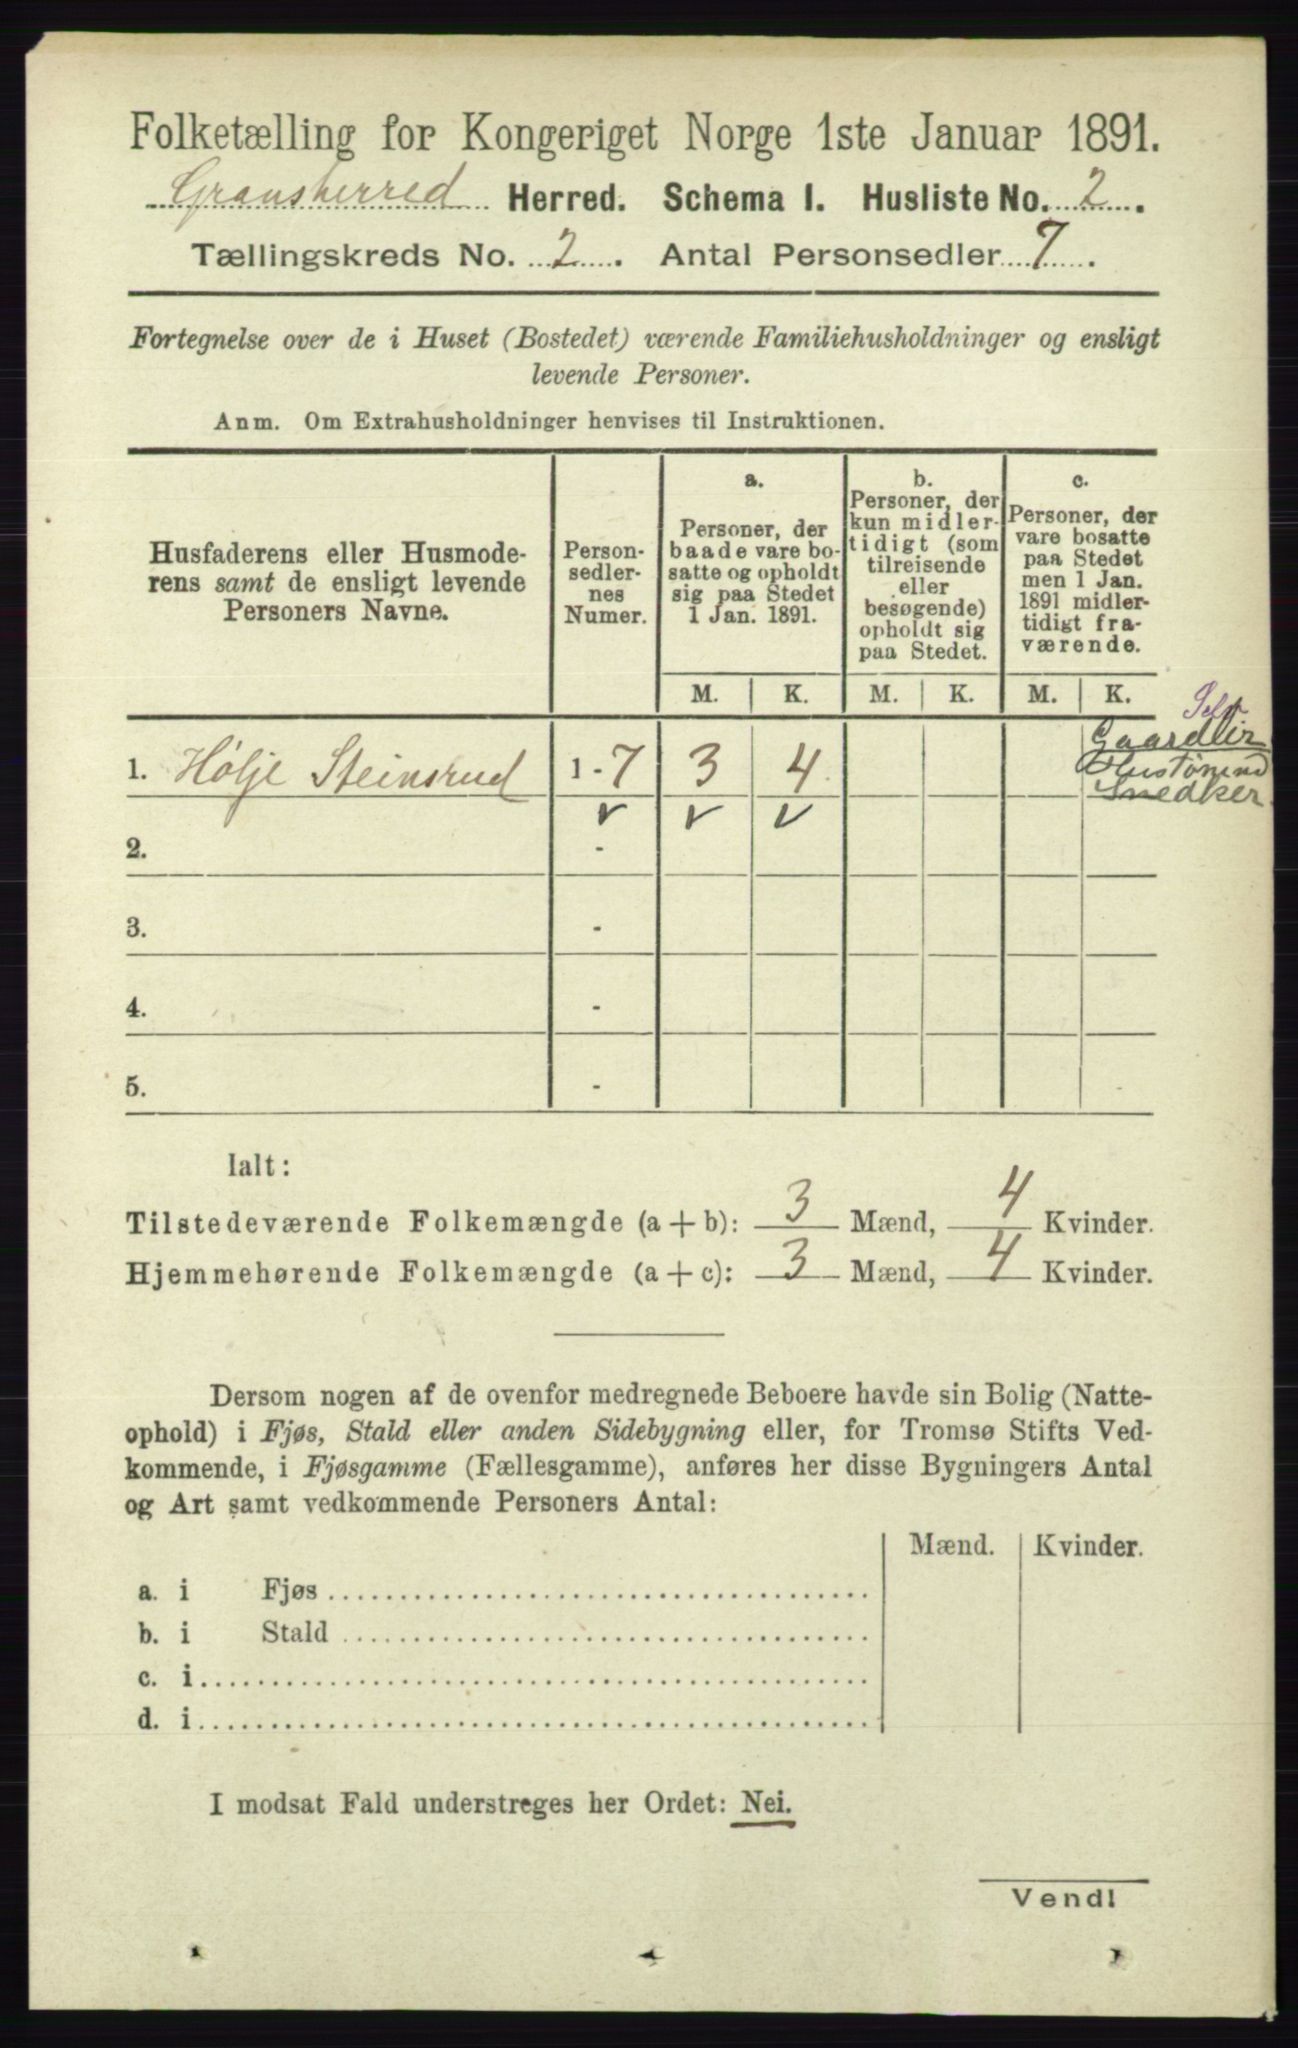 Folketælling for Kongeriget Norge 1ste Januar 1891.
Gransherred Herred. Schema I. Husliste No. 2.
Tællingskreds No. 2. Antal Personsedler 7.
Fortegnelse over de i Huset (Bostedet) værende Familiehusholdninger og ensligt
levende Personer.
Anm. Om Extrahusholdninger henvises til Instruktionen.
Husfaderens eller Husmode-
rens samt de ensligt levende
Personers Navne.
Person-
sedler-
nes
Numer.
a.
Personer, der
baade vare bo-
satte og opholdt
sig paa Stedet
1 Jan. 1891.
b.
Personer, der
kun midler-
tidigt (som
tilreisende
eller
besøgende)
opholdt sig
paa Stedet.
c.
Personer, der
vare bosatte
paa Stedet
men 1 Jan.
1891 midler-
tidigt fra-
værende.
M. K. M. K. M. K.
Gaardbr
1. Hølje Steinsrud 1-7 3 4
Snedker
2. -
3. -
4. -
5. -
Ialt:
Tilstedeværende Folkemængde (a+b): 3 Mænd, 4 Kvinder.
Hjemmehørende Folkemængde (a+c): 3 Mænd, 4 Kvinder.
Dersom nogen af de ovenfor medregnede Beboere havde sin Bolig (Natte-
ophold) i Fjøs, Stald eller anden Sidebygning eller, for Tromsø Stifts Ved-
kommende, i Fjøsgamme (Fællesgamme), anføres her disse Bygningers Antal
og Art samt vedkommende Personers Antal:
Mænd. Kvinder.
a. i Fjøs
b. i Stald
c. i
d. i
I modsat Fald understreges her Ordet: Nei.
Vend!